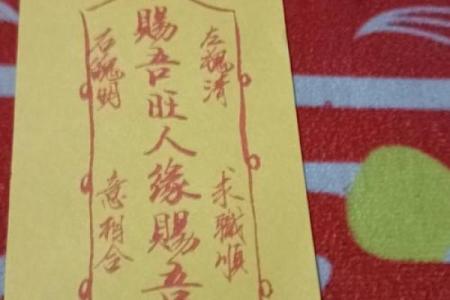 左魂清
求職順
賜吾旺人緣賜吾
右魄明
意相合